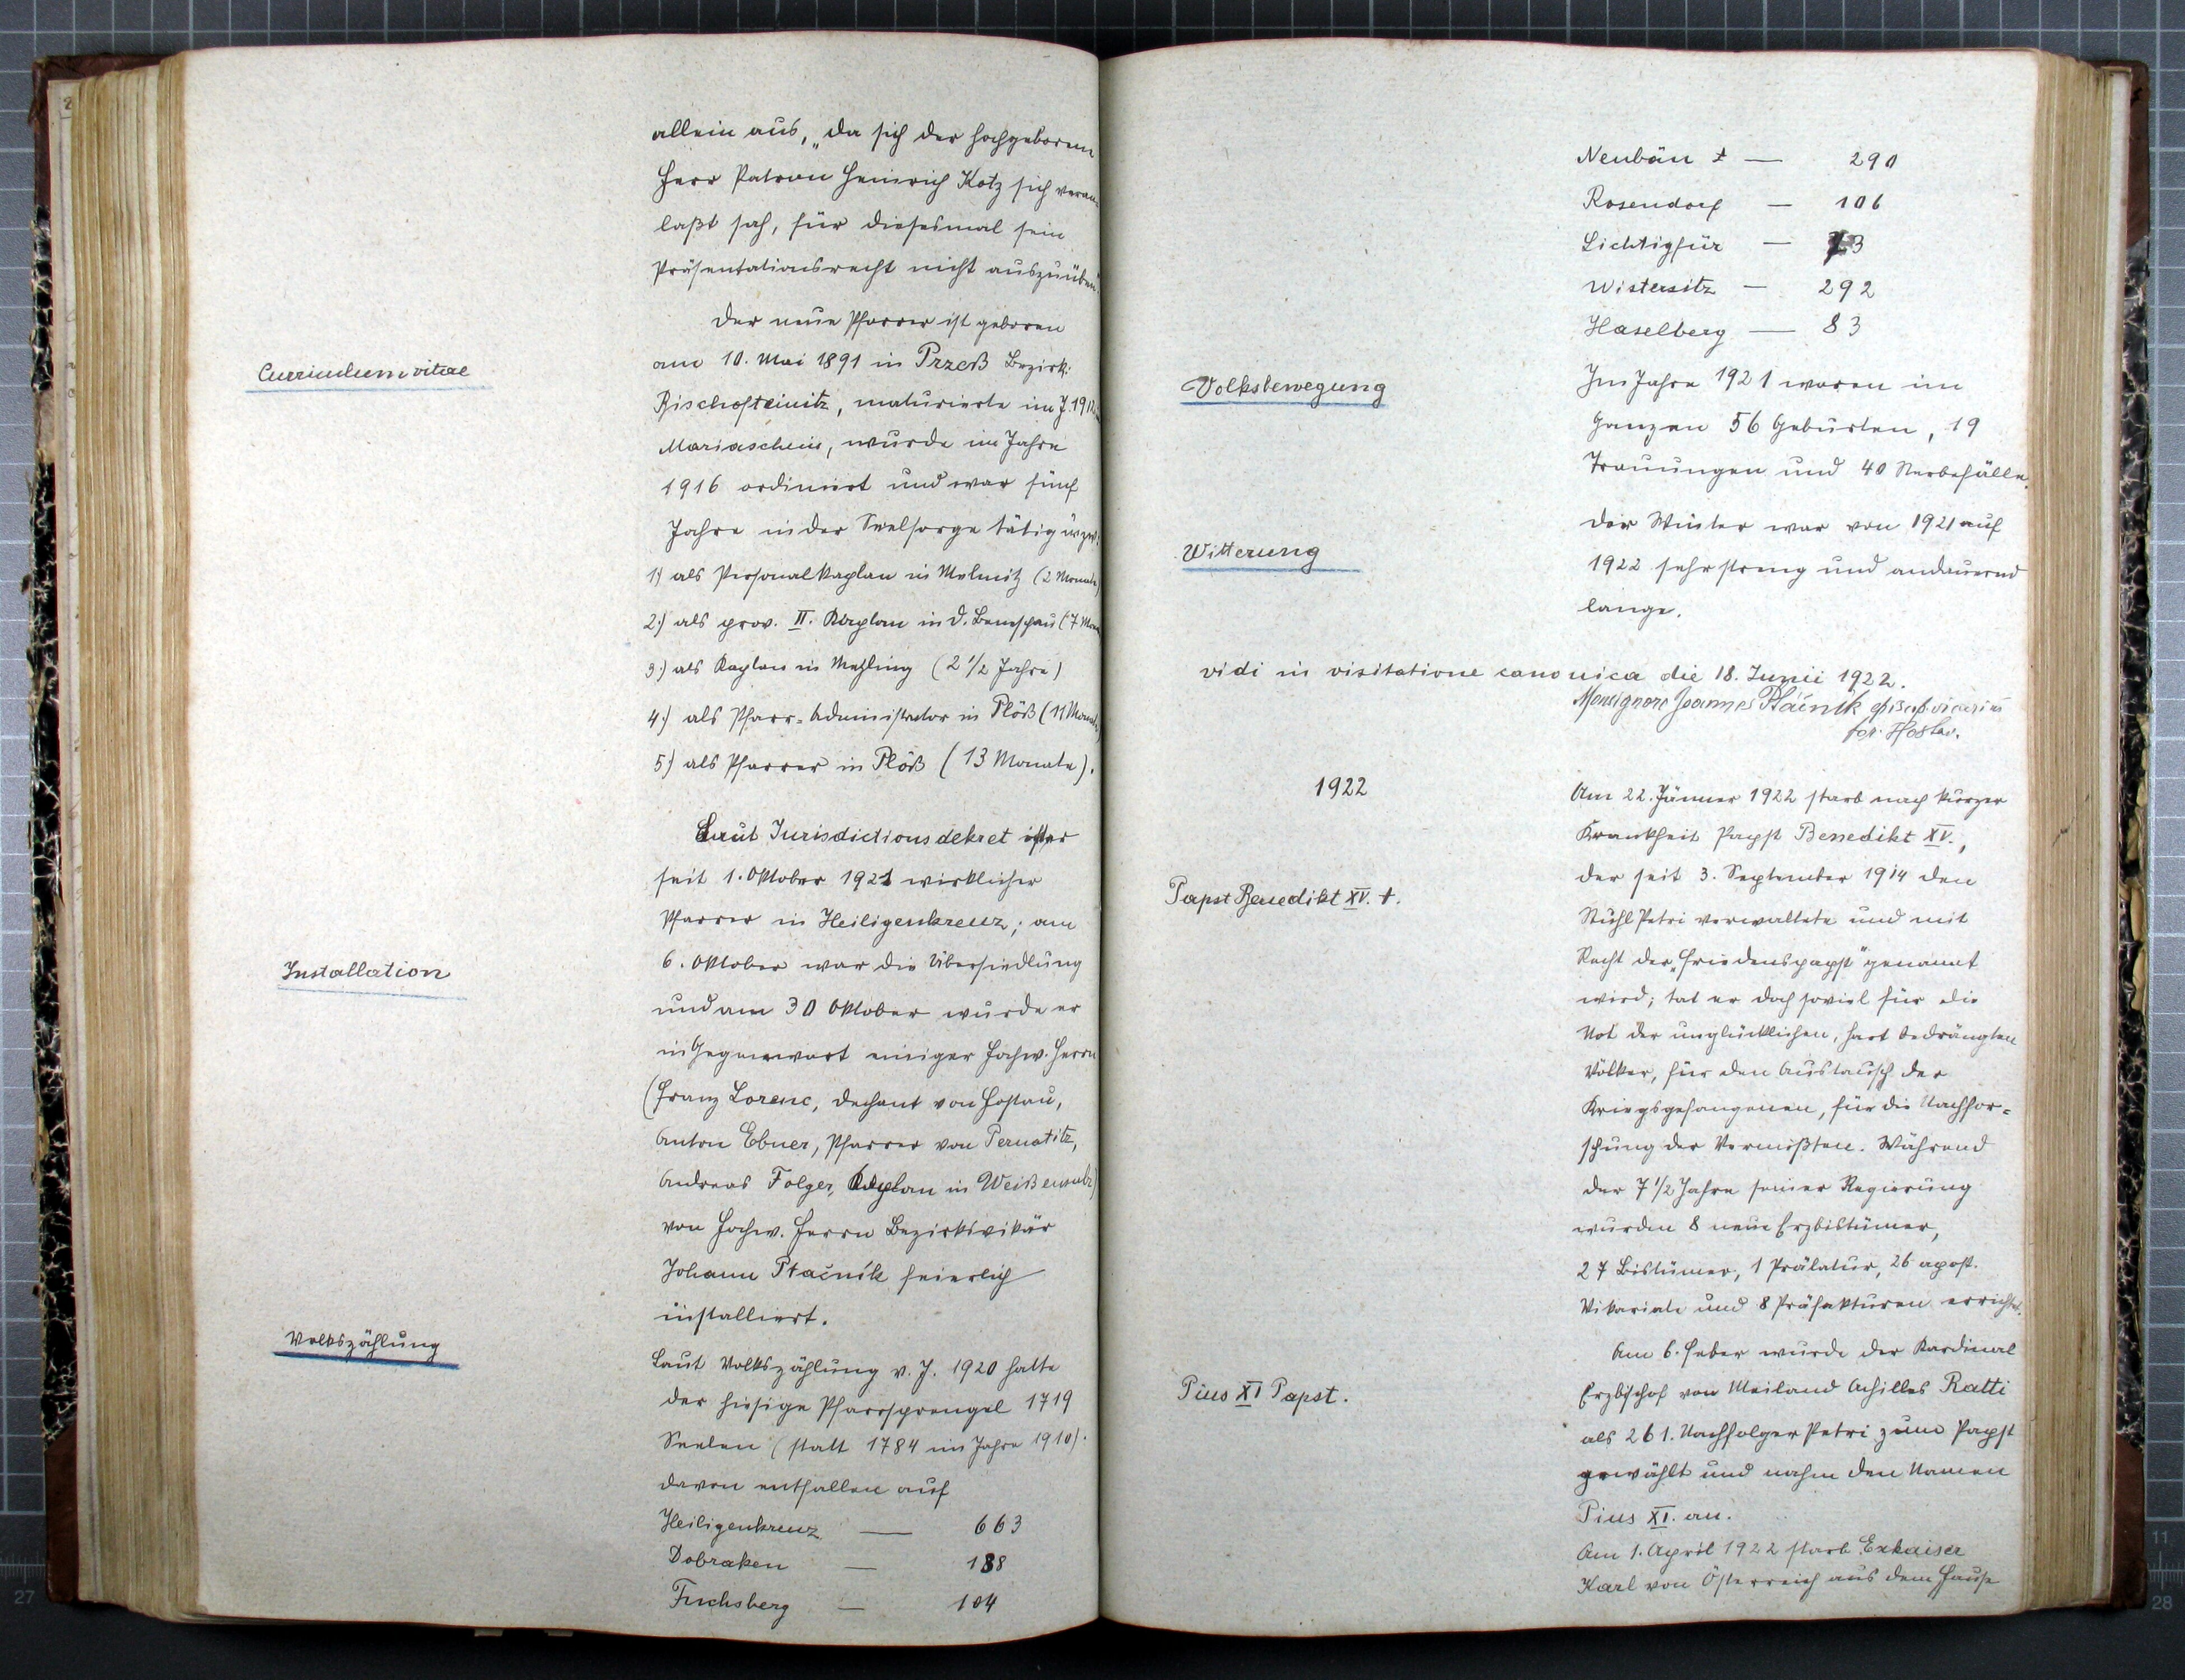 allein aus, „da sich der hochgeborene
Herr Patron Heinrich Kotz sich veran-
laßt sah, für diesesmal sein
Präsentationsrecht nicht auszuüben".
Curriculum vitae
Der neue Pfarrer ist geboren
am 10. Mai 1891 in Przeß Bezirk:
Bischofteinitz, maturierte im J. 1912
Mariaschein, wurde im Jahre
1916 ordiniert und war fünf
Jahre in der Seelsorge tätig u. zw.
1) als Personalkaplan in Melmitz (2 Monate)
2.) als prov. II. Kaplan in D. Beneschau (7 Mon
3.) als Kaplan in Mezling (2 1/2 Jahre)
4.) als Pfarr-Administrator in Plöß (11 Monate)
5.) als Pfarrer in Plöß (13 Monate).
Installation
Laut Jurisdictionsdekret ist er
seit 1. Oktober 1921 wirklicher
Pfarrer in Heiligenkreuz; am
6. Oktober war die Übersiedlung
und am 30 Oktober wurde er
in Gegenwart einiger Hochw. Herrn
(Franz Lorenc, Dechant von Hostau,
Anton Ebner, Pfarrer von Pernatitz,
Andreas Folger, Kaplan in Weißensulz)
von Hochw. Herrn Bezirksvikär
Johann Ptačník feierlich
installiert.
Volkszählung
Laut Volkszählung v. J. 1920 hatte
der hiesige Pfarrsprengel 1719
Seelen (statt 1784 im Jahre 1910).
davon entfallen auf
Heiligenkreuz — 663
Dobraken — 188
Fuchsberg — 104
Neubäu — 290
Rosendorf — 106
Lichtigfür — 73
Wistersitz — 292
Haselberg — 83
Volksbewegung
Im Jahre 1921 waren im
Ganzen 56 Geburten, 19
Trauungen und 40 Sterbefälle.
Witterung
Der Winter war von 1921 auf
1922 sehr streng und andauernd
lange.
vidi in visitatione canonica die 18. Junii 1922.
Monsignore Joannes Ptáčník episcop. vicarius
for. Hostav.
1922
Papst Benedikt XV. †.
Am 22. Jänner 1922 starb nach kurzer
Krankheit Papst Benedikt XV.,
der seit 3. September 1914 den
Stuhl Petri verwaltete und mit
Recht der „Friedenspapst" genannt
wird; tat er doch soviel für die
Not der unglücklichen, hart bedrängten
Völker, für den Austausch der
Kriegsgefangenen, für die Nachfor-
schung der Vermißten. Während
der 7 1/2 Jahre seiner Regierung
wurden 8 neue Erzbistümer,
27 Bistümer, 1 Prälatur, 26 apost.
Vikariate und 8 Präfekturen errichtet.
Pius XI Papst.
Am 6. Feber wurde der Kardinal
Erzbischof von Mailand Achilles Ratti
als 261. Nachfolger Petri zum Papst
gewählt und nahm den Namen
Pius XI. an.
Am 1. April 1922 starb Exkaiser
Karl von Österreich aus dem Hause
27
11
28